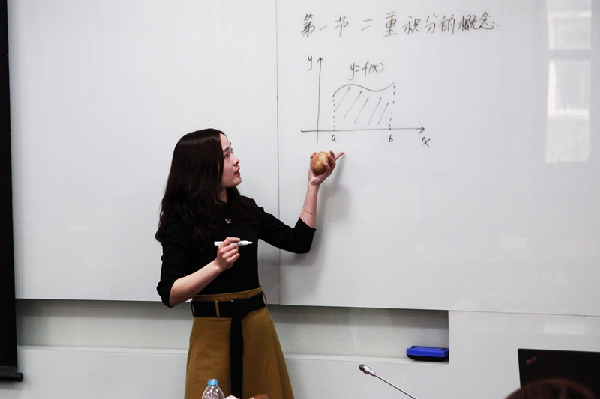 第一节 二重积分的概念
y
y=f(x)
a
b
x